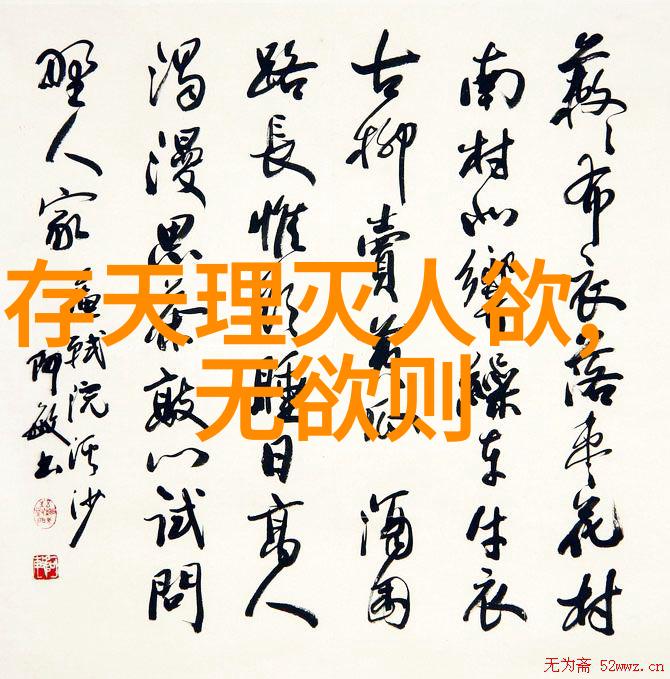 蔌〻布衣落枣花村
南村北響繰车牛衣
古柳賣黄瓜 酒困
路長惟欲睡日高人
渴漫思茶敲门试問
野人家 苏軾浣溪沙
阿敏书
存天理灭人欲,
无欲则
无为斋 52wwz.cn